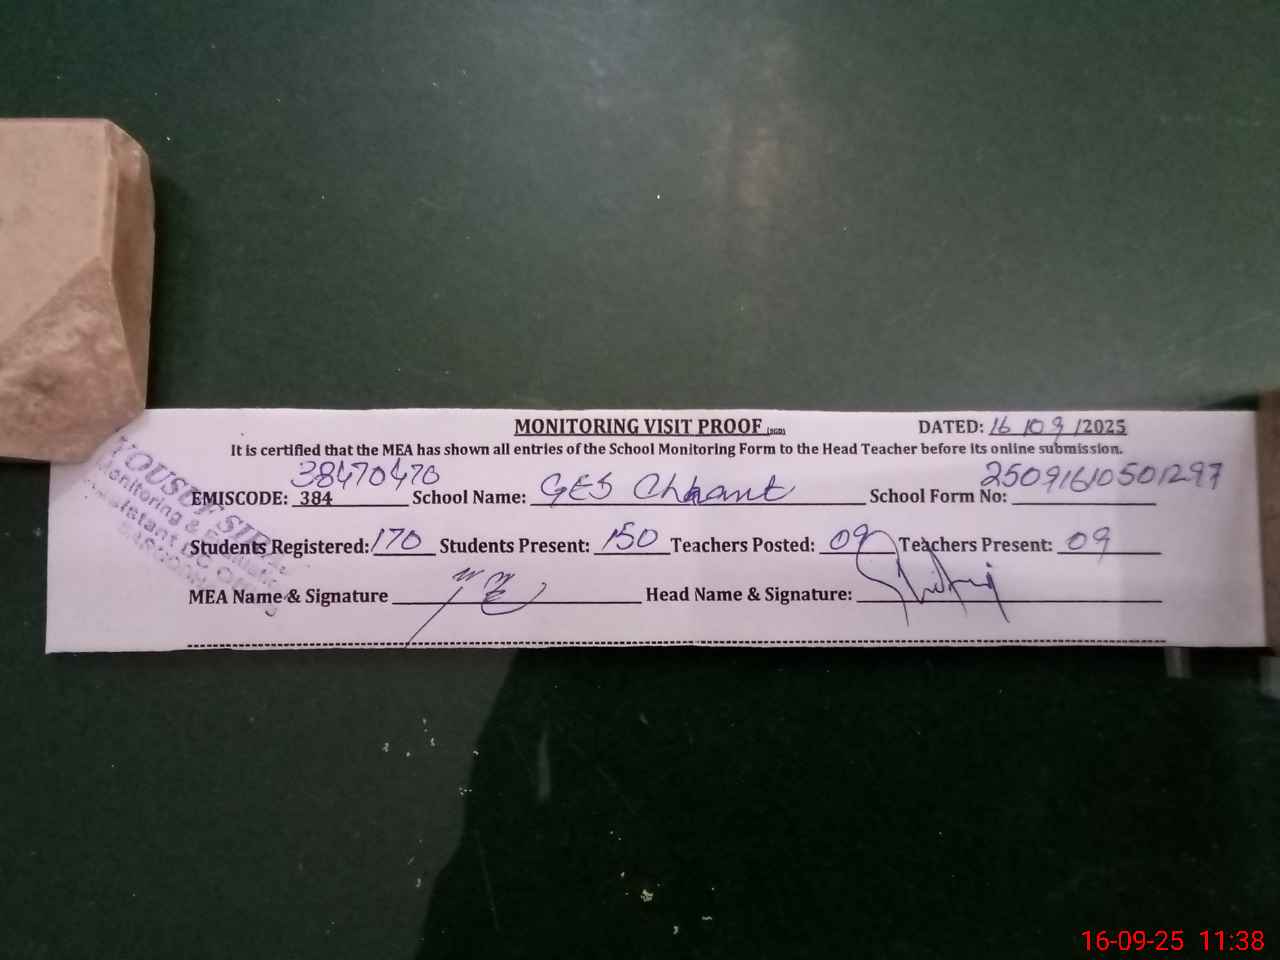 MONITORING VISIT PROOF (SGD) DATED: 16/09/2025
It is certified that the MEA has shown all entries of the School Monitoring Form to the Head Teacher before its online submission.
38470470 25091610501297
EMISCODE: 384 School Name: GES Chhant School Form No:
Students Registered: 170 Students Present: 150 Teachers Posted: 09 Teachers Present: 09
MEA Name & Signature Head Name & Signature:
Monitoring &
16-09-25 11:38